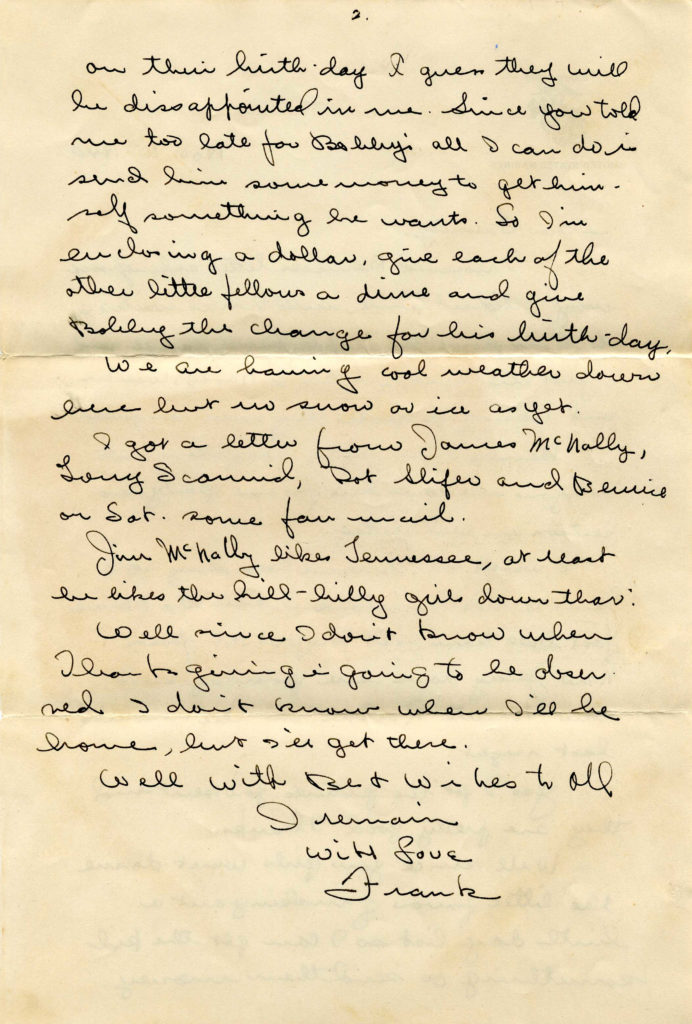 2.
on their birth-day I guess they will
be dissappointed in me. Since you told
me too late for Bobby's all I can do is
send him some money to get him-
self something he wants. So I'm
enclosing a dollar, give each of the
other little fellows a dime and give
Bobby the change for his birth-day.
We are having cool weather down
here but no snow or ice as yet.
I got a letter from James McNally,
Tony Dot Slifer and Bernice
on Sat. some fan mail.
Jim McNally likes Tennessee, at least
he likes the hill-billy girls down thar.
Well since I don't know when
Thanksgiving is going to be obser
ved I don't know when I'll be
home, but I'll get there.
Well with Best Wishes to all
I remain
With Love
Frank